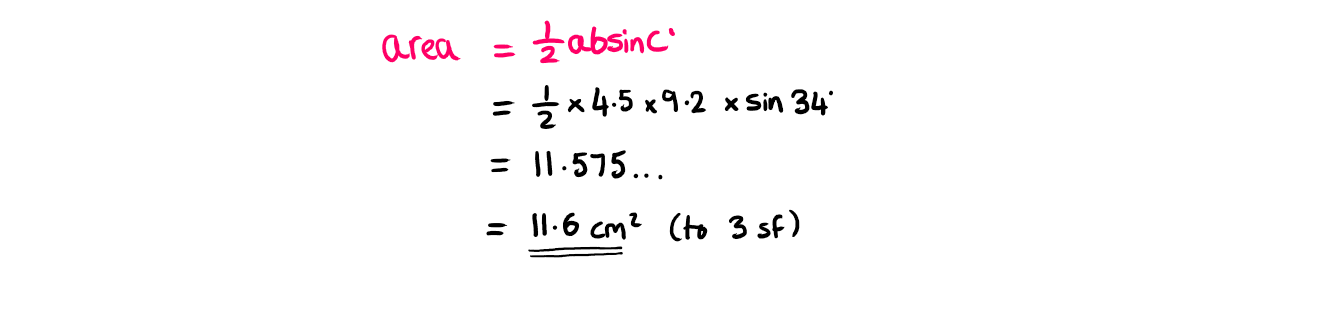 area = ½absinC°
= ½ × 4.5 × 9.2 × sin 34°
= 11.575...
= 11.6 cm² (to 3 sf)